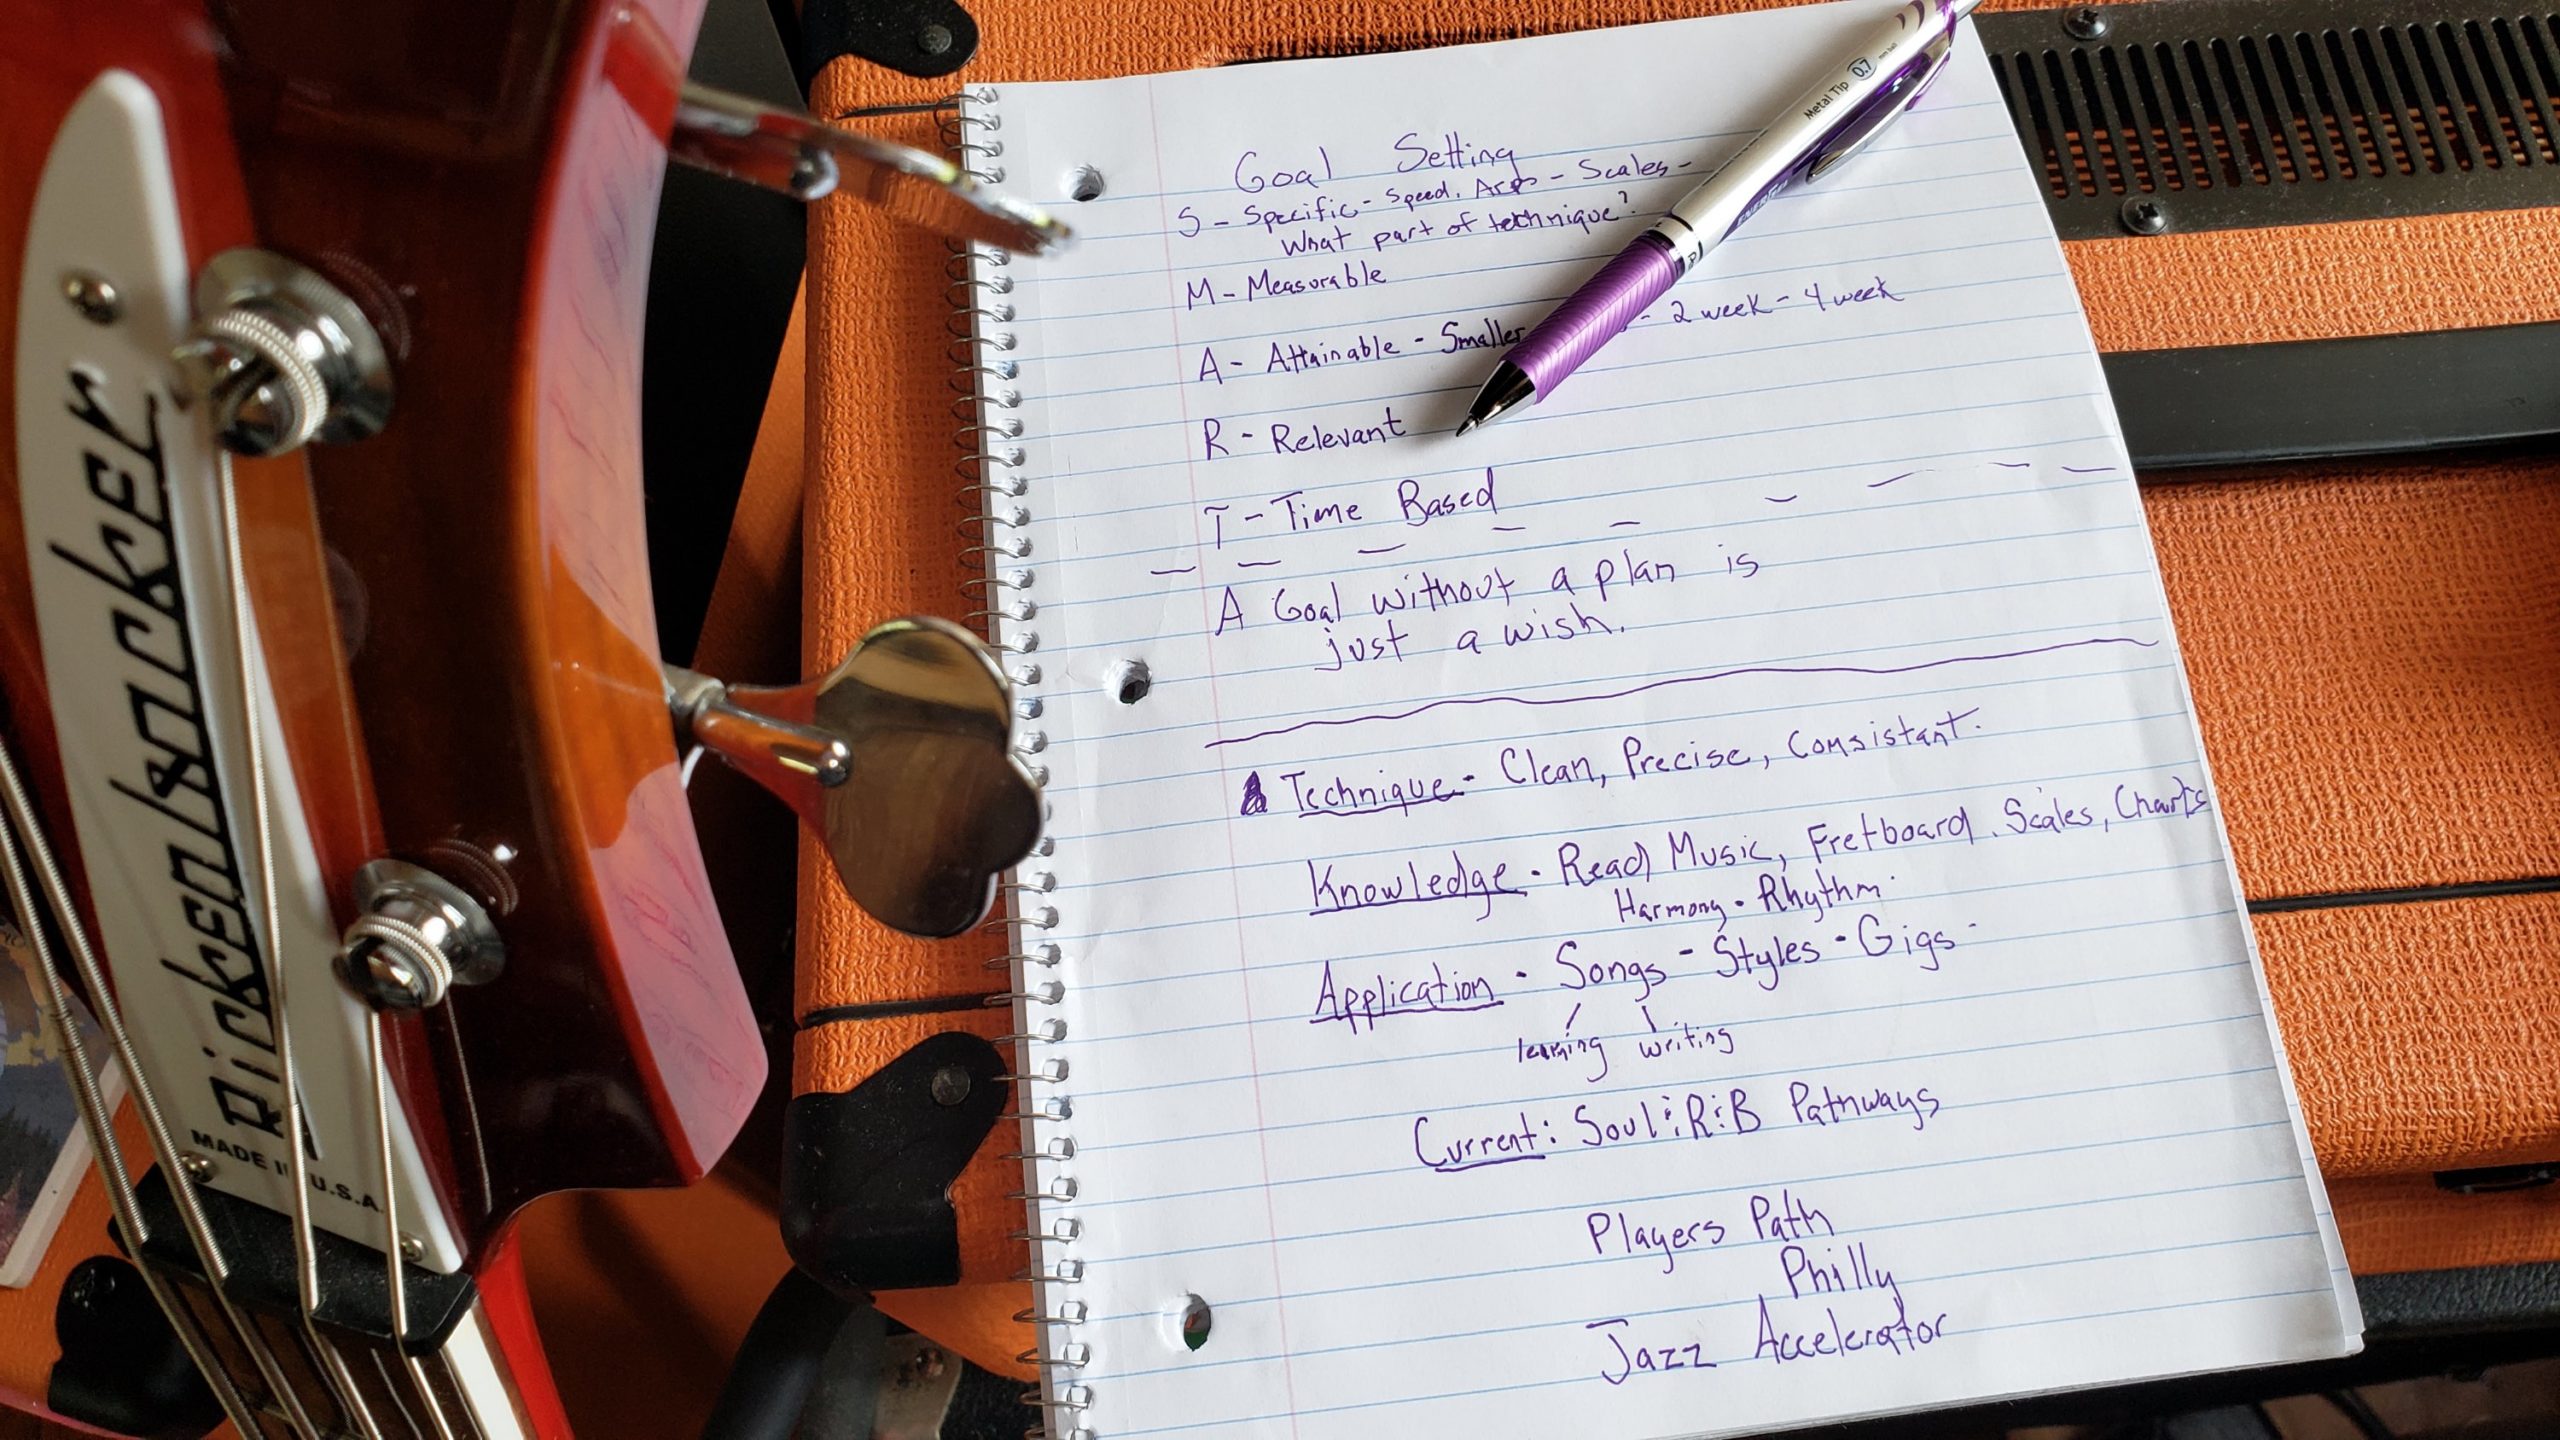 Rickenbacker
MADE IN U.S.A.
Metal Tip 0.7
Goal Setting
S - Specific - Speed. Arps - Scales -
What part of technique?
M - Measurable
A - Attainable - Smaller - 2 week - 4 week
R - Relevant
T - Time Based
A Goal without a plan is
just a wish.
Technique - Clean, Precise, Consistant.
Knowledge - Read Music, Fretboard. Scales, Charts
Harmony - Rhythm.
Application - Songs - Styles - Gigs -
learning writing
Current: Soul & R & B Pathways
Players Path
Philly
Jazz Accelerator